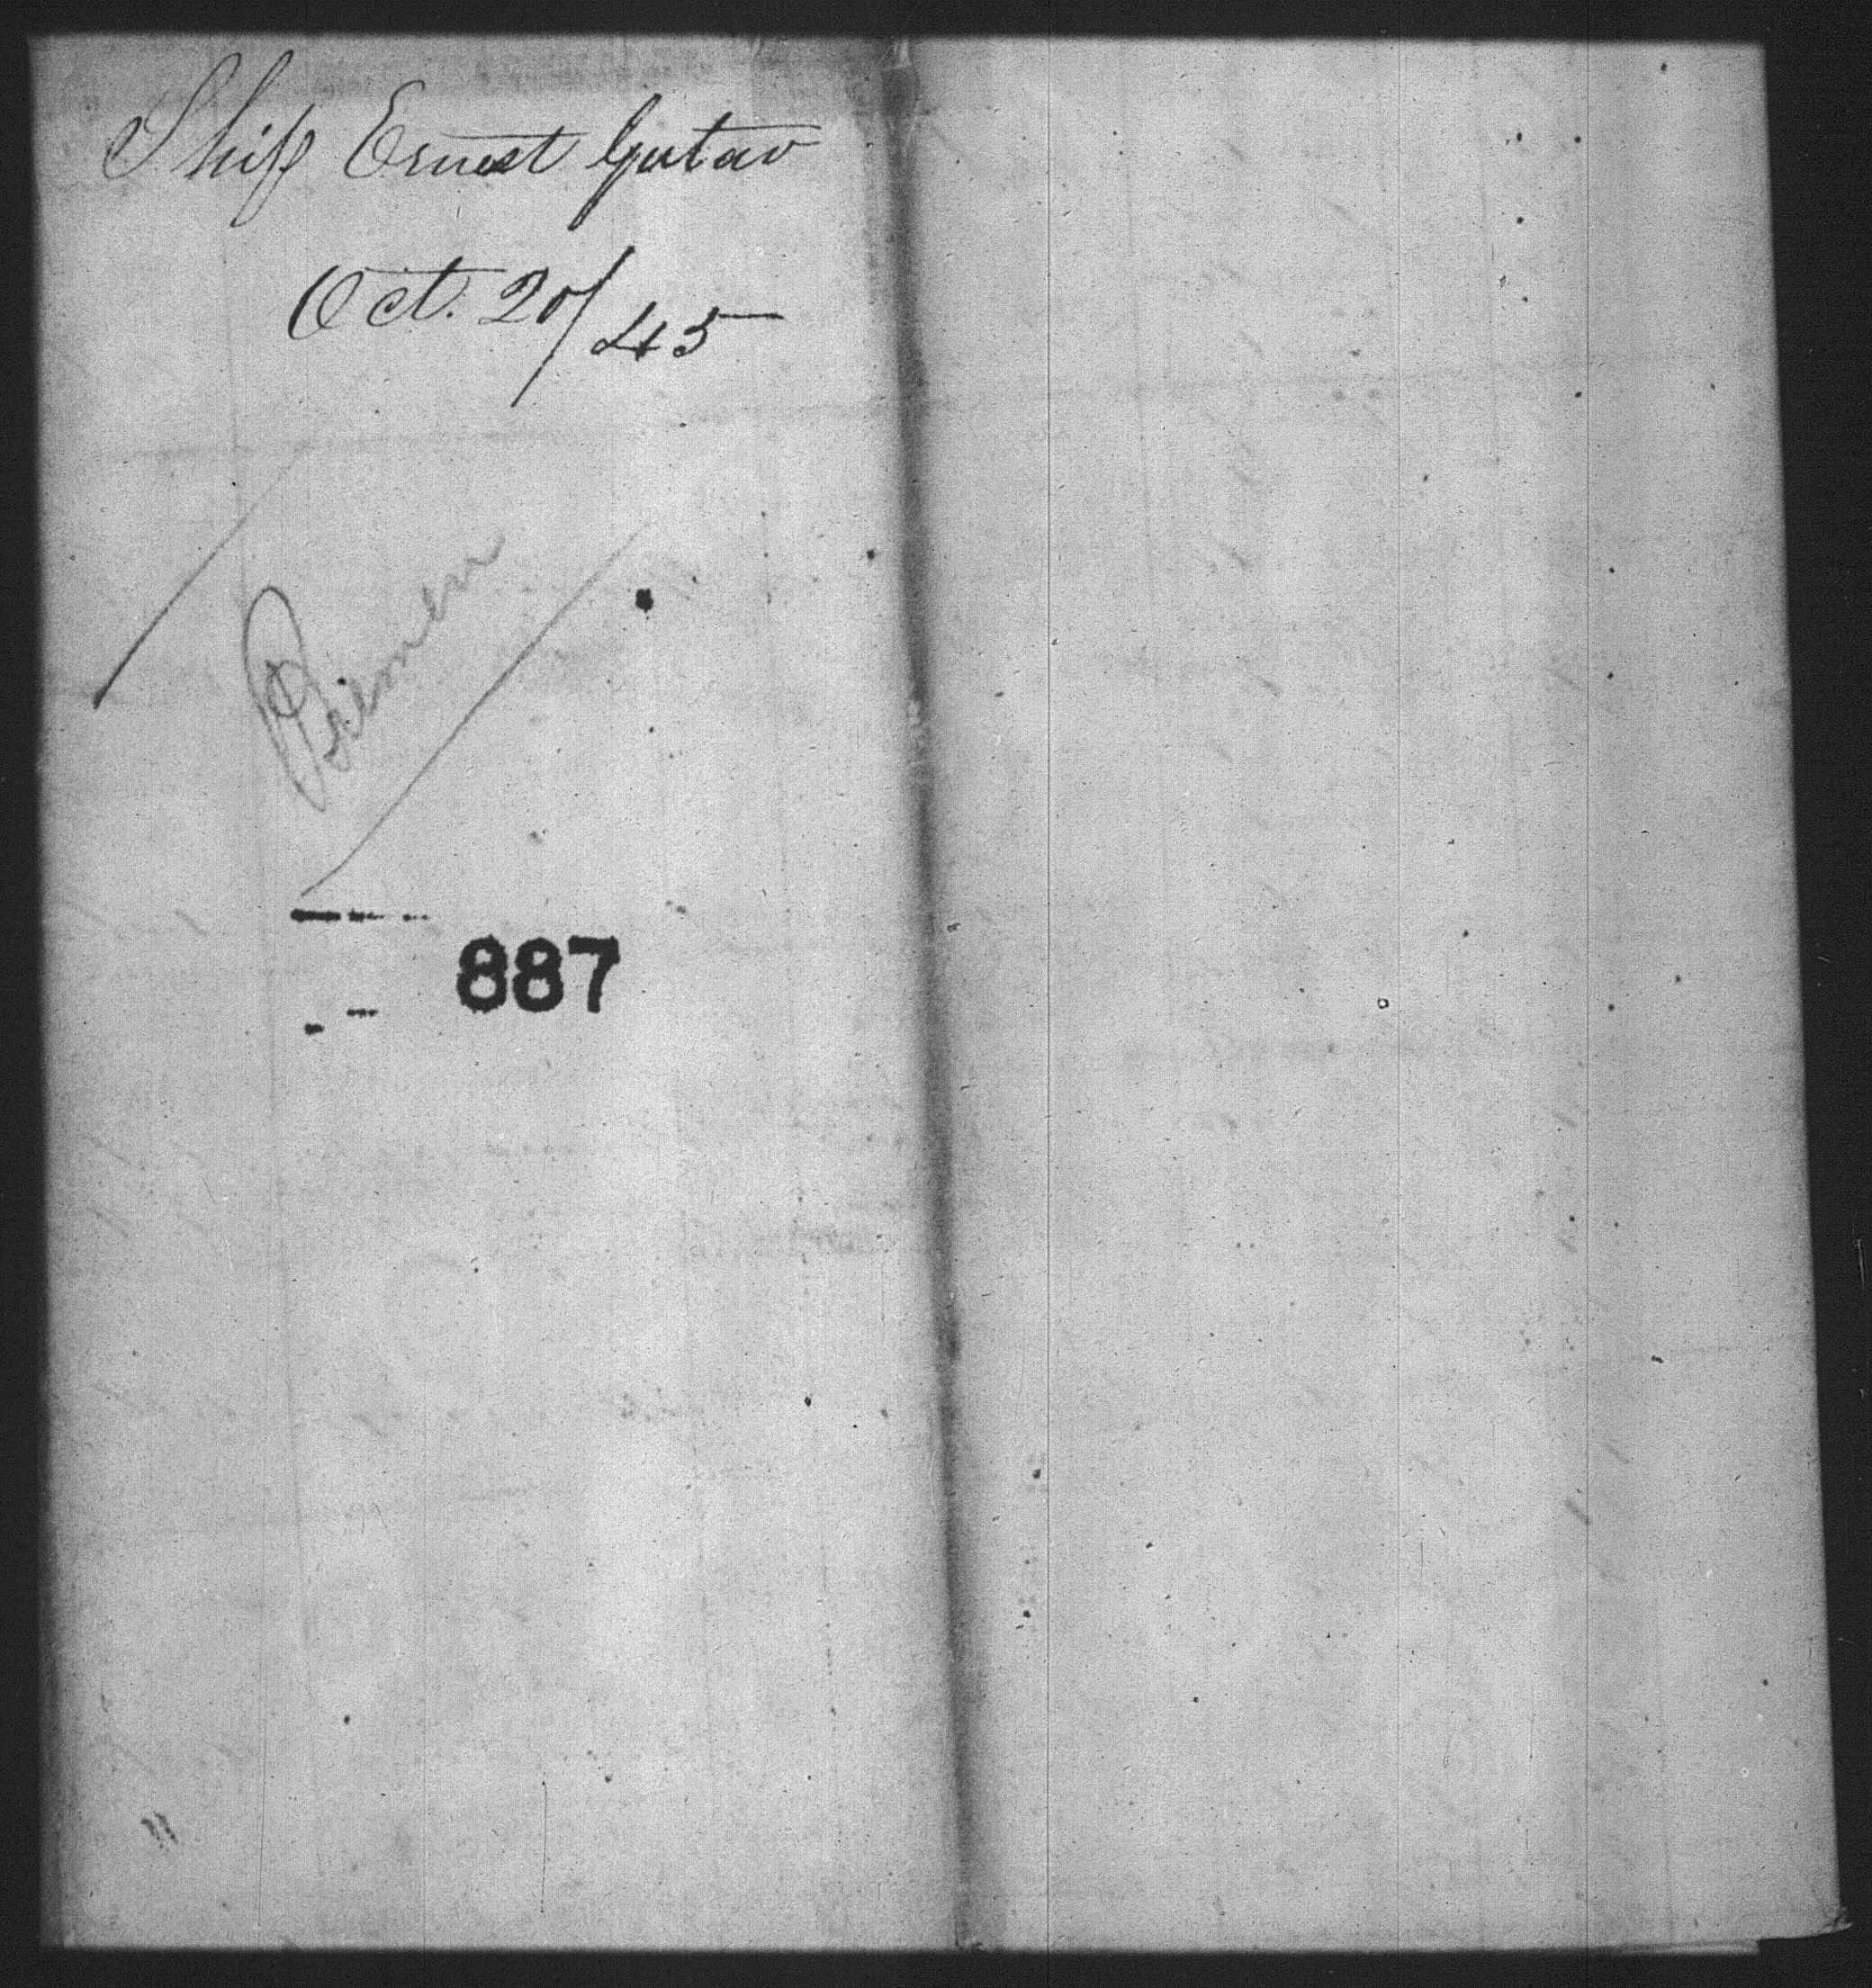 Ship Ernest Gustav
Oct. 20/45
Bremen
887